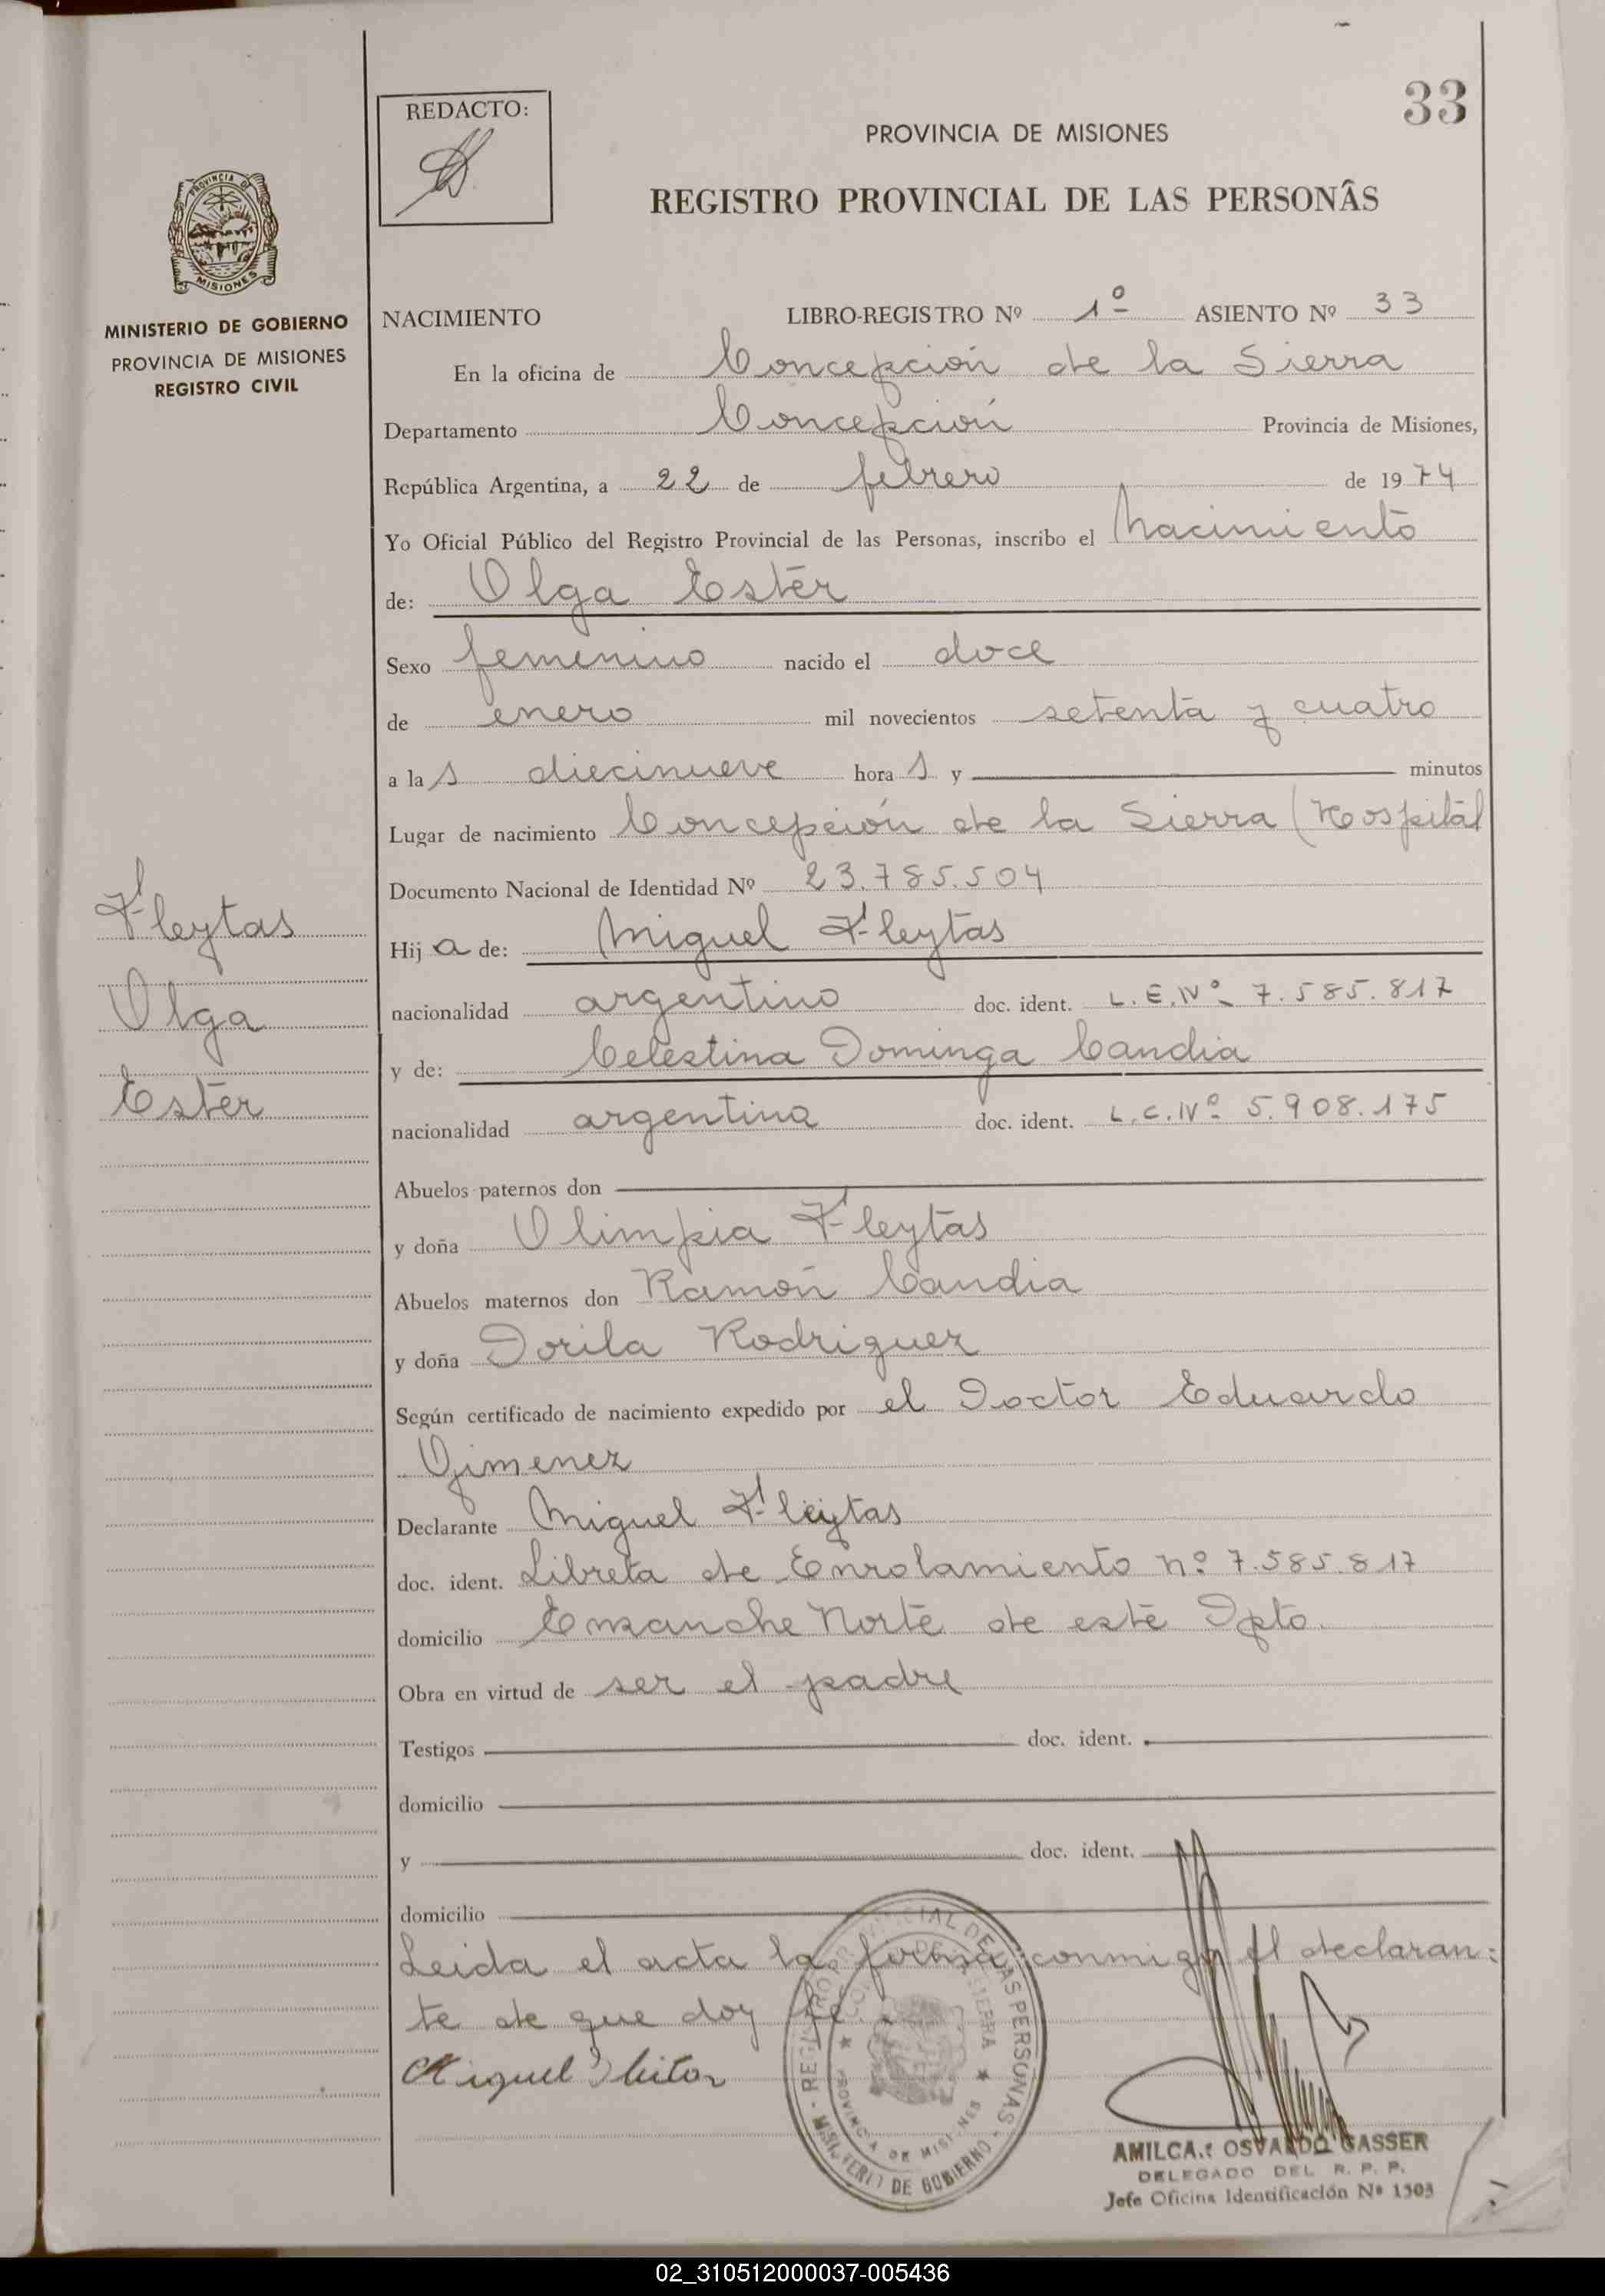 33
REDACTO:
PROVINCIA DE MISIONES
REGISTRO PROVINCIAL DE LAS PERSONAS
PROVINCIA DE
MISIONES
MINISTERIO DE GOBIERNO
PROVINCIA DE MISIONES
REGISTRO CIVIL
NACIMIENTO LIBRO-REGISTRO Nº 1º ASIENTO Nº 33
En la oficina de Concepción de la Sierra
Departamento Concepción Provincia de Misiones,
República Argentina, a 22 de febrero de 1974
Yo Oficial Público del Registro Provincial de las Personas, inscribo el Nacimiento
de: Olga Ester
Sexo femenino nacido el doce
de enero mil novecientos setenta y cuatro
a las diecinueve horas y minutos
Lugar de nacimiento Concepción de la Sierra (Hospital
Documento Nacional de Identidad Nº 23.785.504
Fleytas
Olga
Ester
Hija de: Miguel Fleytas
nacionalidad argentino doc. ident. L.E.Nº 7.585.817
y de: Celestina Dominga Candia
nacionalidad argentina doc. ident. L.C.Nº 5.908.175
Abuelos paternos don
y doña Olimpia Fleytas
Abuelos maternos don Ramón Candia
y doña Dorila Rodriguez
Según certificado de nacimiento expedido por el Doctor Eduardo
Gimenez
Declarante Miguel Fleytas
doc. ident. Libreta de Enrolamiento nº 7.585.817
domicilio Ensanche Norte de este Dpto.
Obra en virtud de ser el padre
Testigos doc. ident.
domicilio
y doc. ident.
domicilio
Leida el acta la firma conmigo el declaran:
te de que doy fe
Miguel
REGISTRO PROVINCIAL DE LAS PERSONAS - MINISTERIO DE GOBIERNO -
PROVINCIA DE MISIONES
AMILCAR OSVALDO GASSER
DELEGADO DEL R. P. P.
Jefe Oficina Identificación Nº 1503
02_310512000037-005436